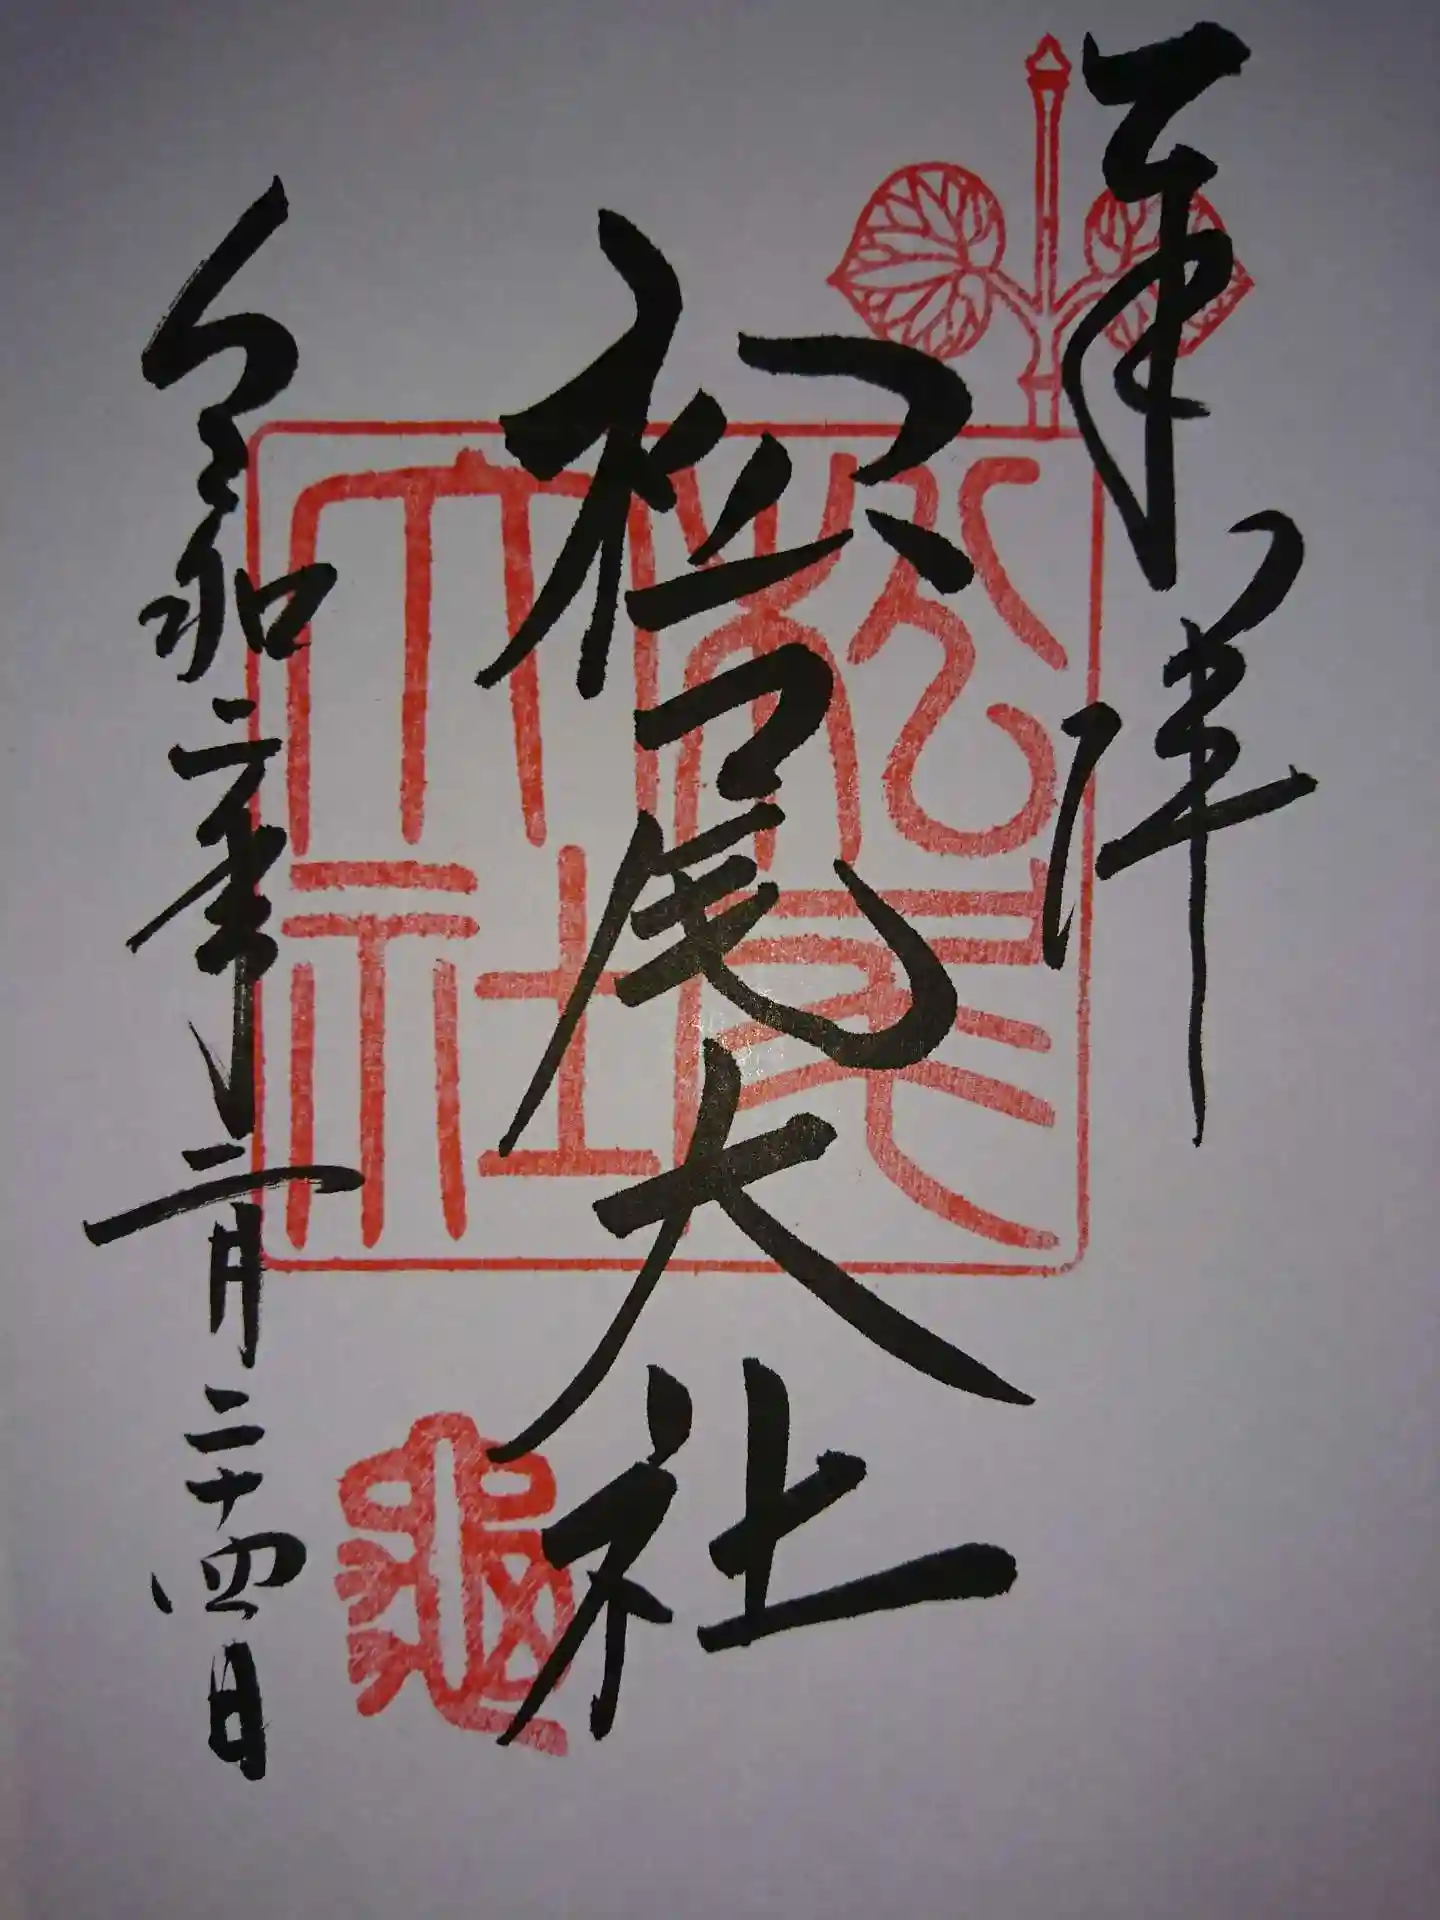 奉拝
松尾大社
令和二年二月二十四日
松尾
大社
亀